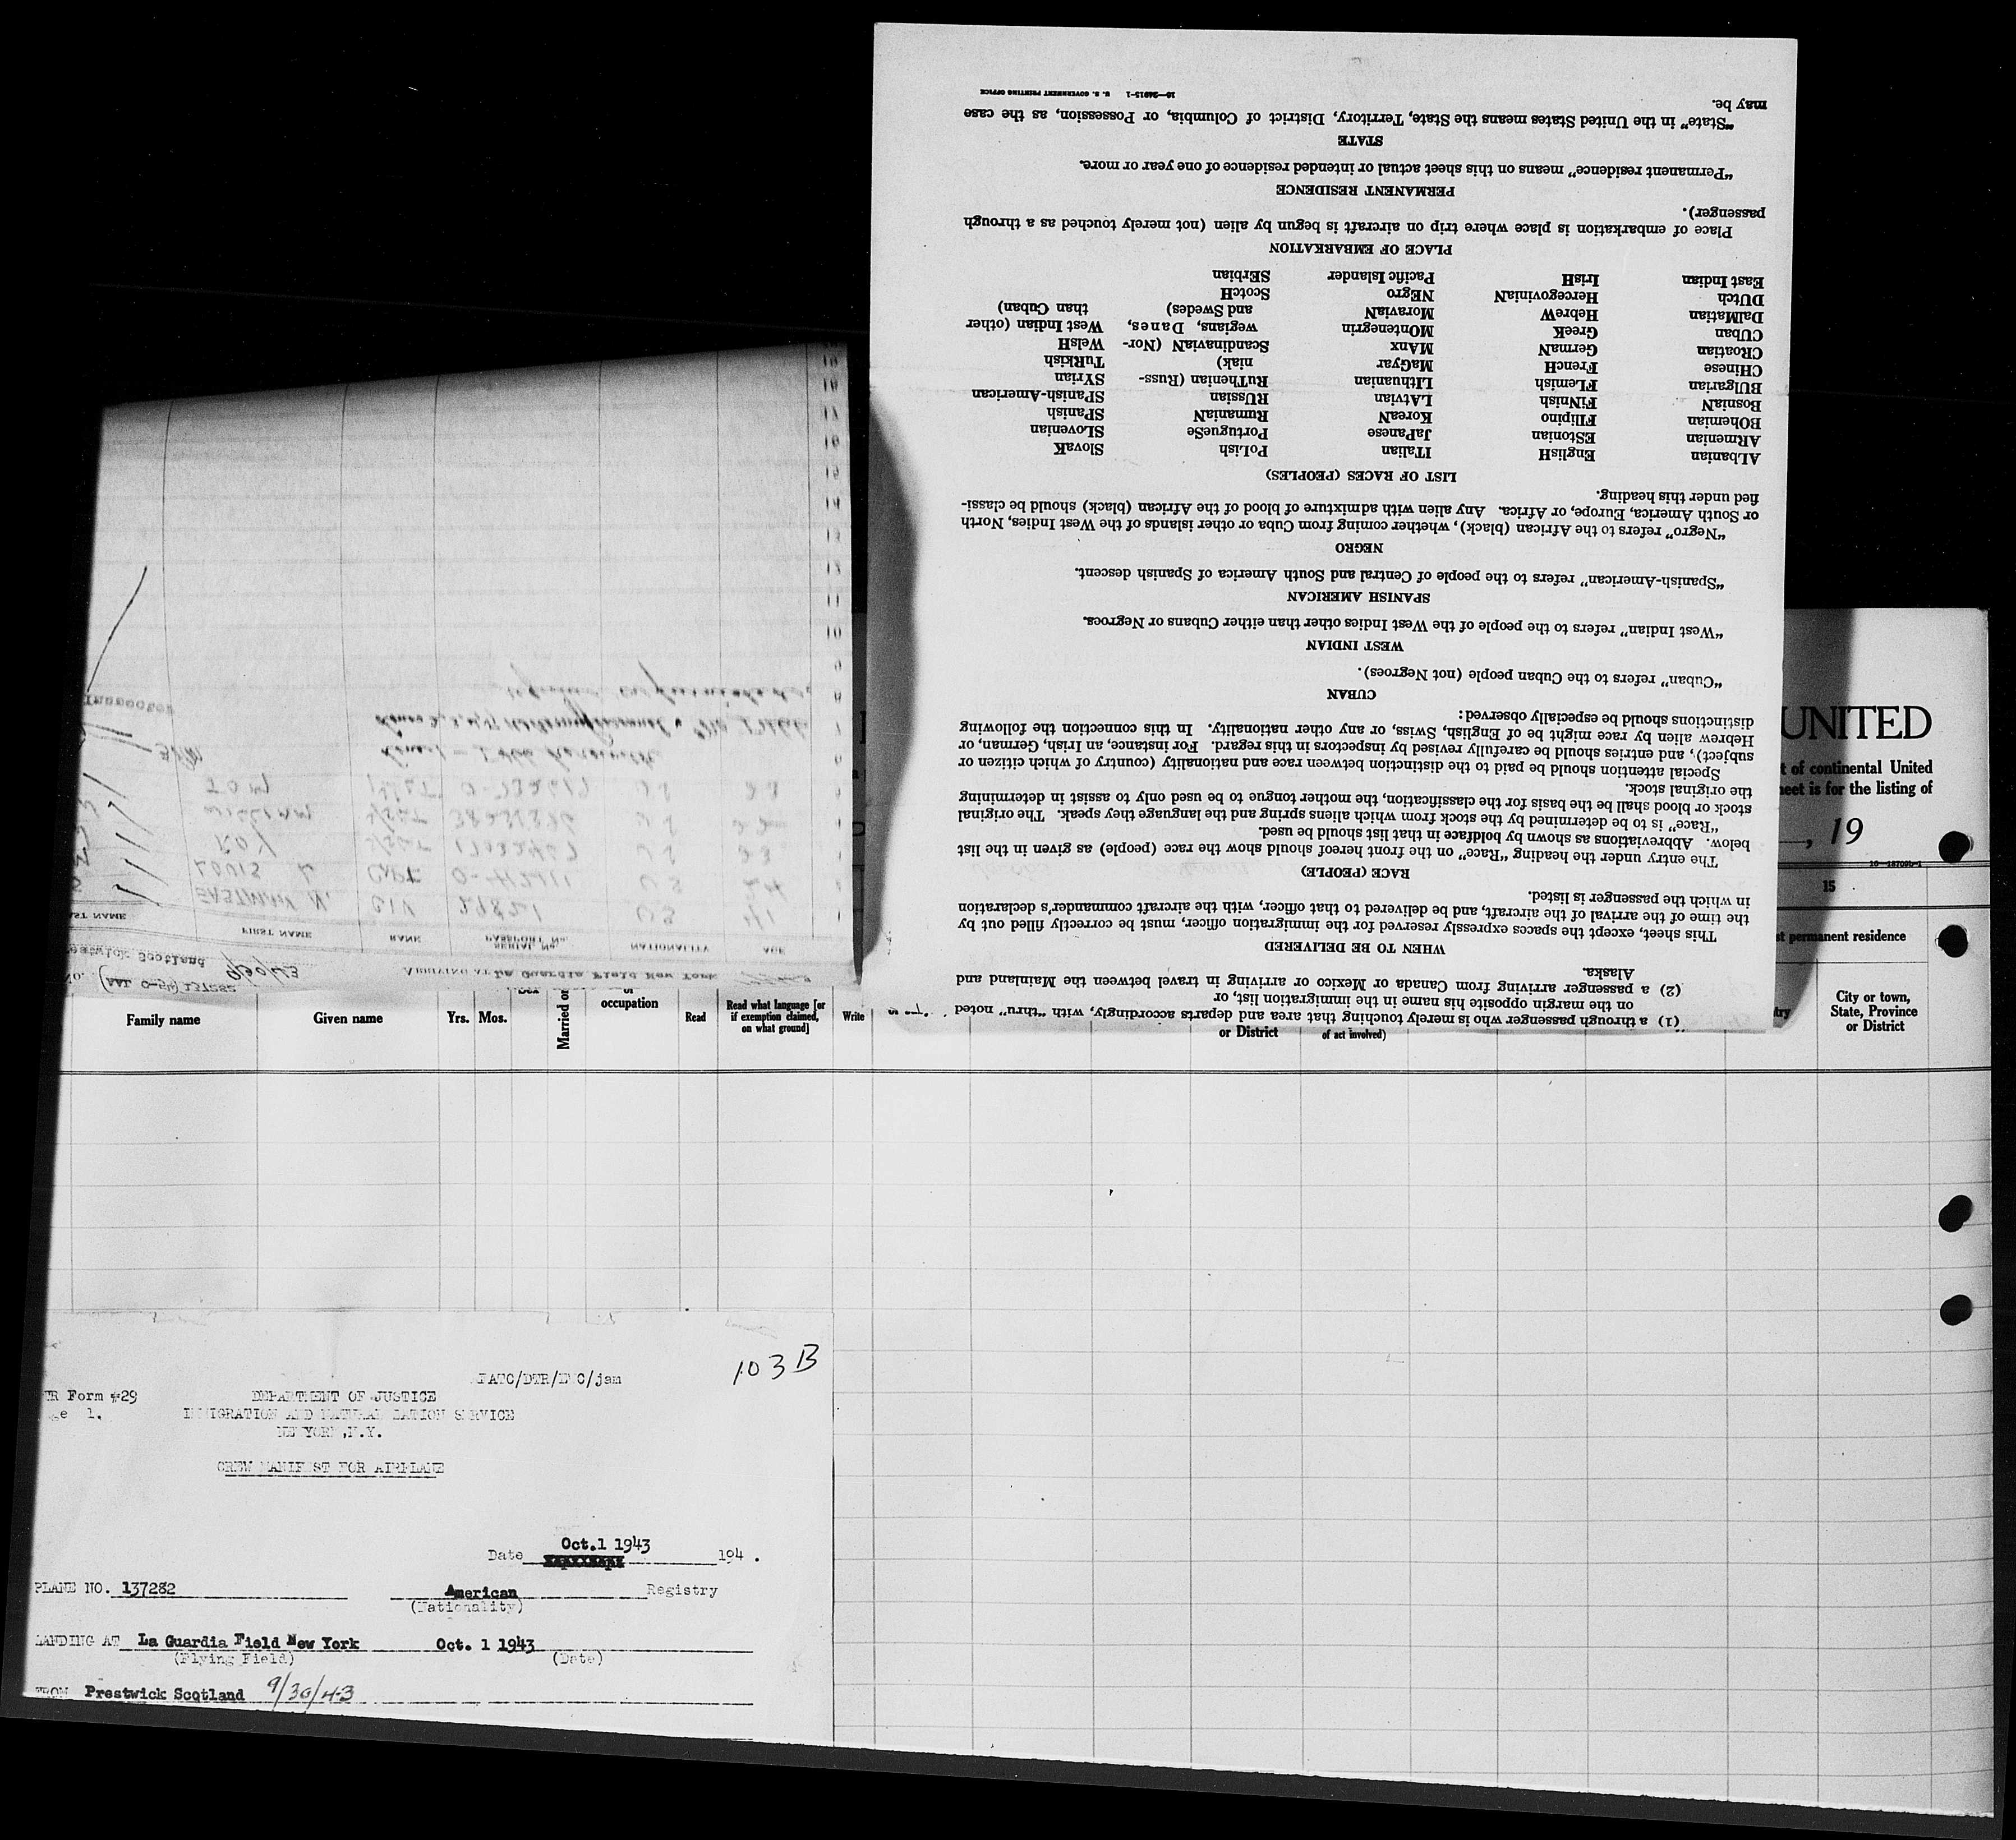 (1) a through passenger who is merely touching that area and departs accordingly, with “thru” noted
on the margin opposite his name in the immigration list, or
(2) a passenger arriving from Canada or Mexico or arriving in travel between the Mainland and
Alaska.
WHEN TO BE DELIVERED
This sheet, except the spaces expressly reserved for the immigration officer, must be correctly filled out by
the time of the arrival of the aircraft, and be delivered to that officer, with the aircraft commander's declaration
in which the passenger is listed.
RACE (PEOPLE)
The entry under the heading “Race” on the front hereof should show the race (people) as given in the list
below. Abbreviations as shown by boldface in that list should be used.
“Race” is to be determined by the stock from which aliens spring and the language they speak. The original
stock or blood shall be the basis for the classification, the mother tongue to be used only to assist in determining
the original stock.
Special attention should be paid to the distinction between race and nationality (country of which citizen or
subject), and entries should be carefully revised by inspectors in this regard. For instance, an Irish, German, or
Hebrew alien by race might be of English, Swiss, or any other nationality. In this connection the following
distinctions should be especially observed:
CUBAN
“Cuban” refers to the Cuban people (not Negroes).
WEST INDIAN
“West Indian” refers to the people of the West Indies other than either Cubans or Negroes.
SPANISH AMERICAN
“Spanish-American” refers to the people of Central and South America of Spanish descent.
NEGRO
“Negro” refers to the African (black), whether coming from Cuba or other islands of the West Indies, North
or South America, Europe, or Africa. Any alien with admixture of blood of the African (black) should be classi-
fied under this heading.
LIST OF RACES (PEOPLES)
ALbanian EnglisH ITalian PoLish SlovaK
ARmenian EStonian JaPanese PortugueSe SLOvenian
BOhemian FIlipino KoreaN RumaniaN SPanisH
BosniaN FiNnish LAtvian RUssian SPanish-American
BUlgarian FLemish LIthuanian RuThenian (Russ- SYrian
CHinese FrencH MaGyar niak) TuRkish
CRoatian GermaN MAnx ScandinaviaN (Nor- WelsH
CUban GreeK MOntenegrin wegians, Danes, West Indian (other
DalMatian HebreW MoraviaN and Swedes) than Cuban)
DUtch HercegoviniaN NEgro ScotcH
East Indian IrisH Pacific Islander SErbian
PLACE OF EMBARKATION
Place of embarkation is place where trip on aircraft is begun by alien (not merely touched as a through
passenger).
PERMANENT RESIDENCE
“Permanent residence” means on this sheet actual or intended residence of one year or more.
STATE
“State” in the United States means the State, Territory, District of Columbia, or Possession, as the case
may be.
16—24915-1 U. S. GOVERNMENT PRINTING OFFICE
No. (AAL 0-54) 137282
estwick Scotland 9/30/43
ARRIVING AT La Guardia Field New York
AST NAME FIRST NAME RANK SERIAL No. PASSPORT No. NATIONALITY AGE
EASTMAN N. CIV 29821 US 41
LOUIS CAPT US 24
ROY US 23
WILLIAM US 22
TOM US 23
Inspector
UNITED
t of continental United
heet is for the listing of
, 19
15
st permanent residence
Family name
Given name
Yrs. Mos.
Married or
occupation
Read
Read what language [or
if exemption claimed,
on what ground]
Write
or District
of act involved)
try
City or town,
State, Province
or District
103 B
ATC/DTR/EWC/jam
TR Form #29
ge 1.
DEPARTMENT OF JUSTICE
IMMIGRATION AND NATURALIZATION SERVICE
NEW YORK, N.Y.
CREW MANIFEST FOR AIRPLANE
Date Oct.1 1943 194 .
PLANE NO. 137282 American Registry
(Nationality)
LANDING AT La Guardia Field New York Oct. 1 1943
(Flying Field) (Date)
FROM Prestwick Scotland 9/30/43